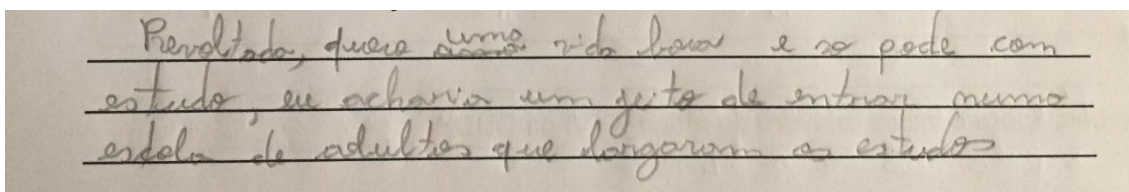 Revoltada, quero uma vida boa e so pode com
estudo, eu acharia um jeito de entrar numa
escola de adultos que largaram os estudos